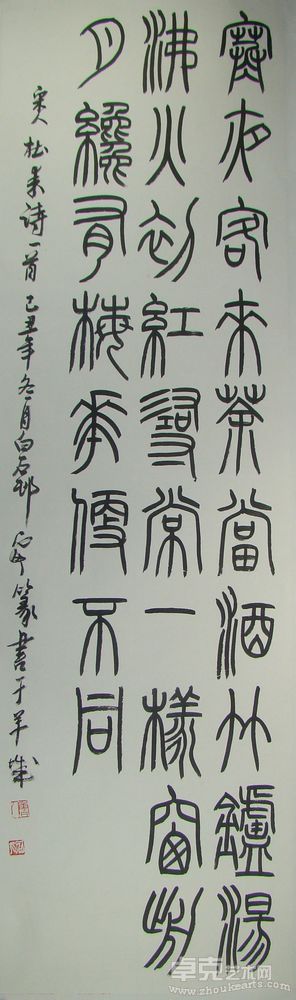 寒夜客來茶當酒竹鑪湯
沸火初紅尋常一樣窗前
月纔有梅花便不同
宋人杜耒詩一首己丑年冬月白石邨
篆書于羊城
卓克艺术网
www.zhoukearts.com